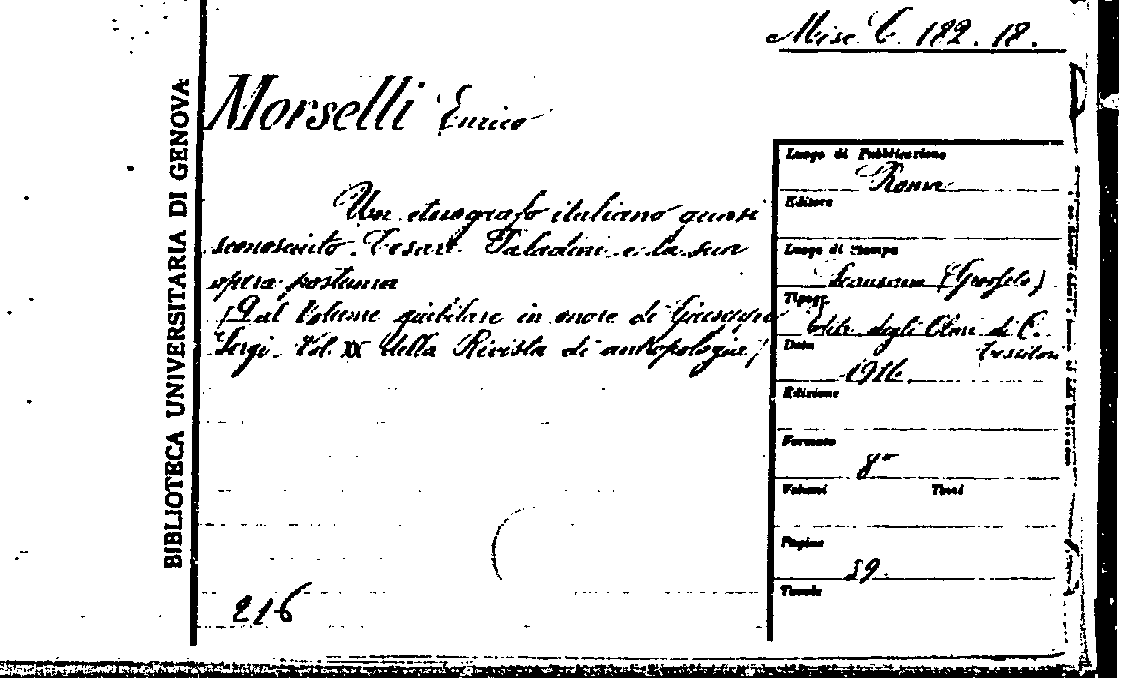 Misc. C. 182. 18.
BIBLIOTECA UNIVERSITARIA DI GENOVA
Morselli Enrico
Un etnografo italiano quasi
sconosciuto. Cesare Paladini e la sua
opera postuma
(Dal Volume giubilare in onore di Giuseppe
Sergi. Vol. XX della Rivista di antropologia)
216
Luogo di Pubblicazione
Roma
Editore
Luogo di Stampa
Scansano (Grosseto)
Tipogr.
Stab. degli Olmi di C.
Tessitori
Data
1916.
Edizione
Formato
8°
Volumi Tomi
Pagine
59.
Tavole